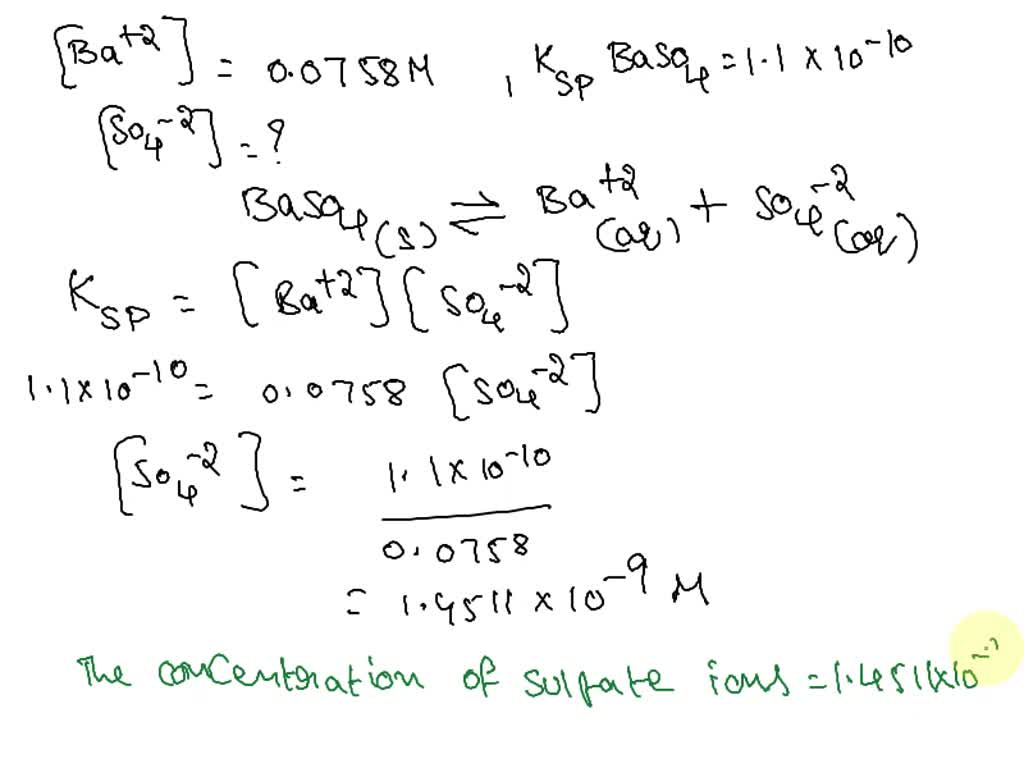 [Ba⁺²] = 0.0758M , Ksp BaSO₄ = 1.1 × 10⁻¹⁰
[SO₄⁻²] = ?
BaSO₄(s) ⇌ Ba⁺²(aq) + SO₄⁻²(aq)
Ksp = [Ba⁺²][SO₄⁻²]
1.1×10⁻¹⁰ = 0.0758 [SO₄⁻²]
[SO₄⁻²] = 1.1×10⁻¹⁰
0.0758
= 1.4511 × 10⁻⁹ M
The concentration of sulfate ions = 1.4511×10